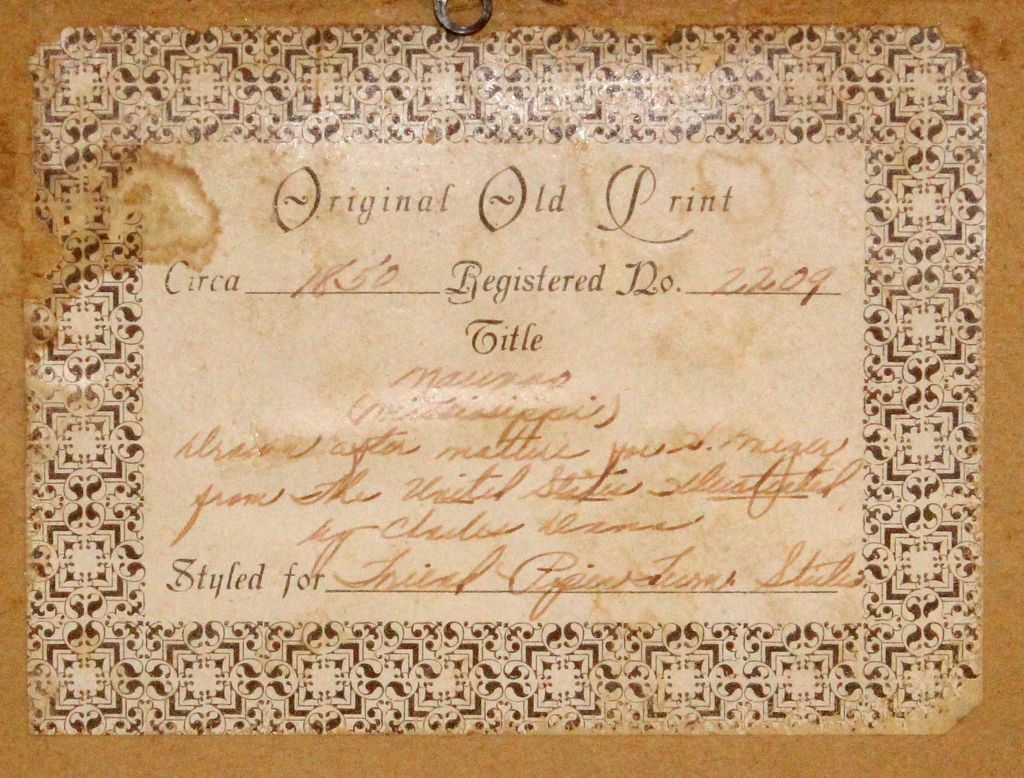 Original Old Print
Circa 1850 Registered No. 2209
Title
(Mississippi)
Drawn after nature for H. Meyer
from the United States Illustrated
by Charles Dana
Styled for Friend